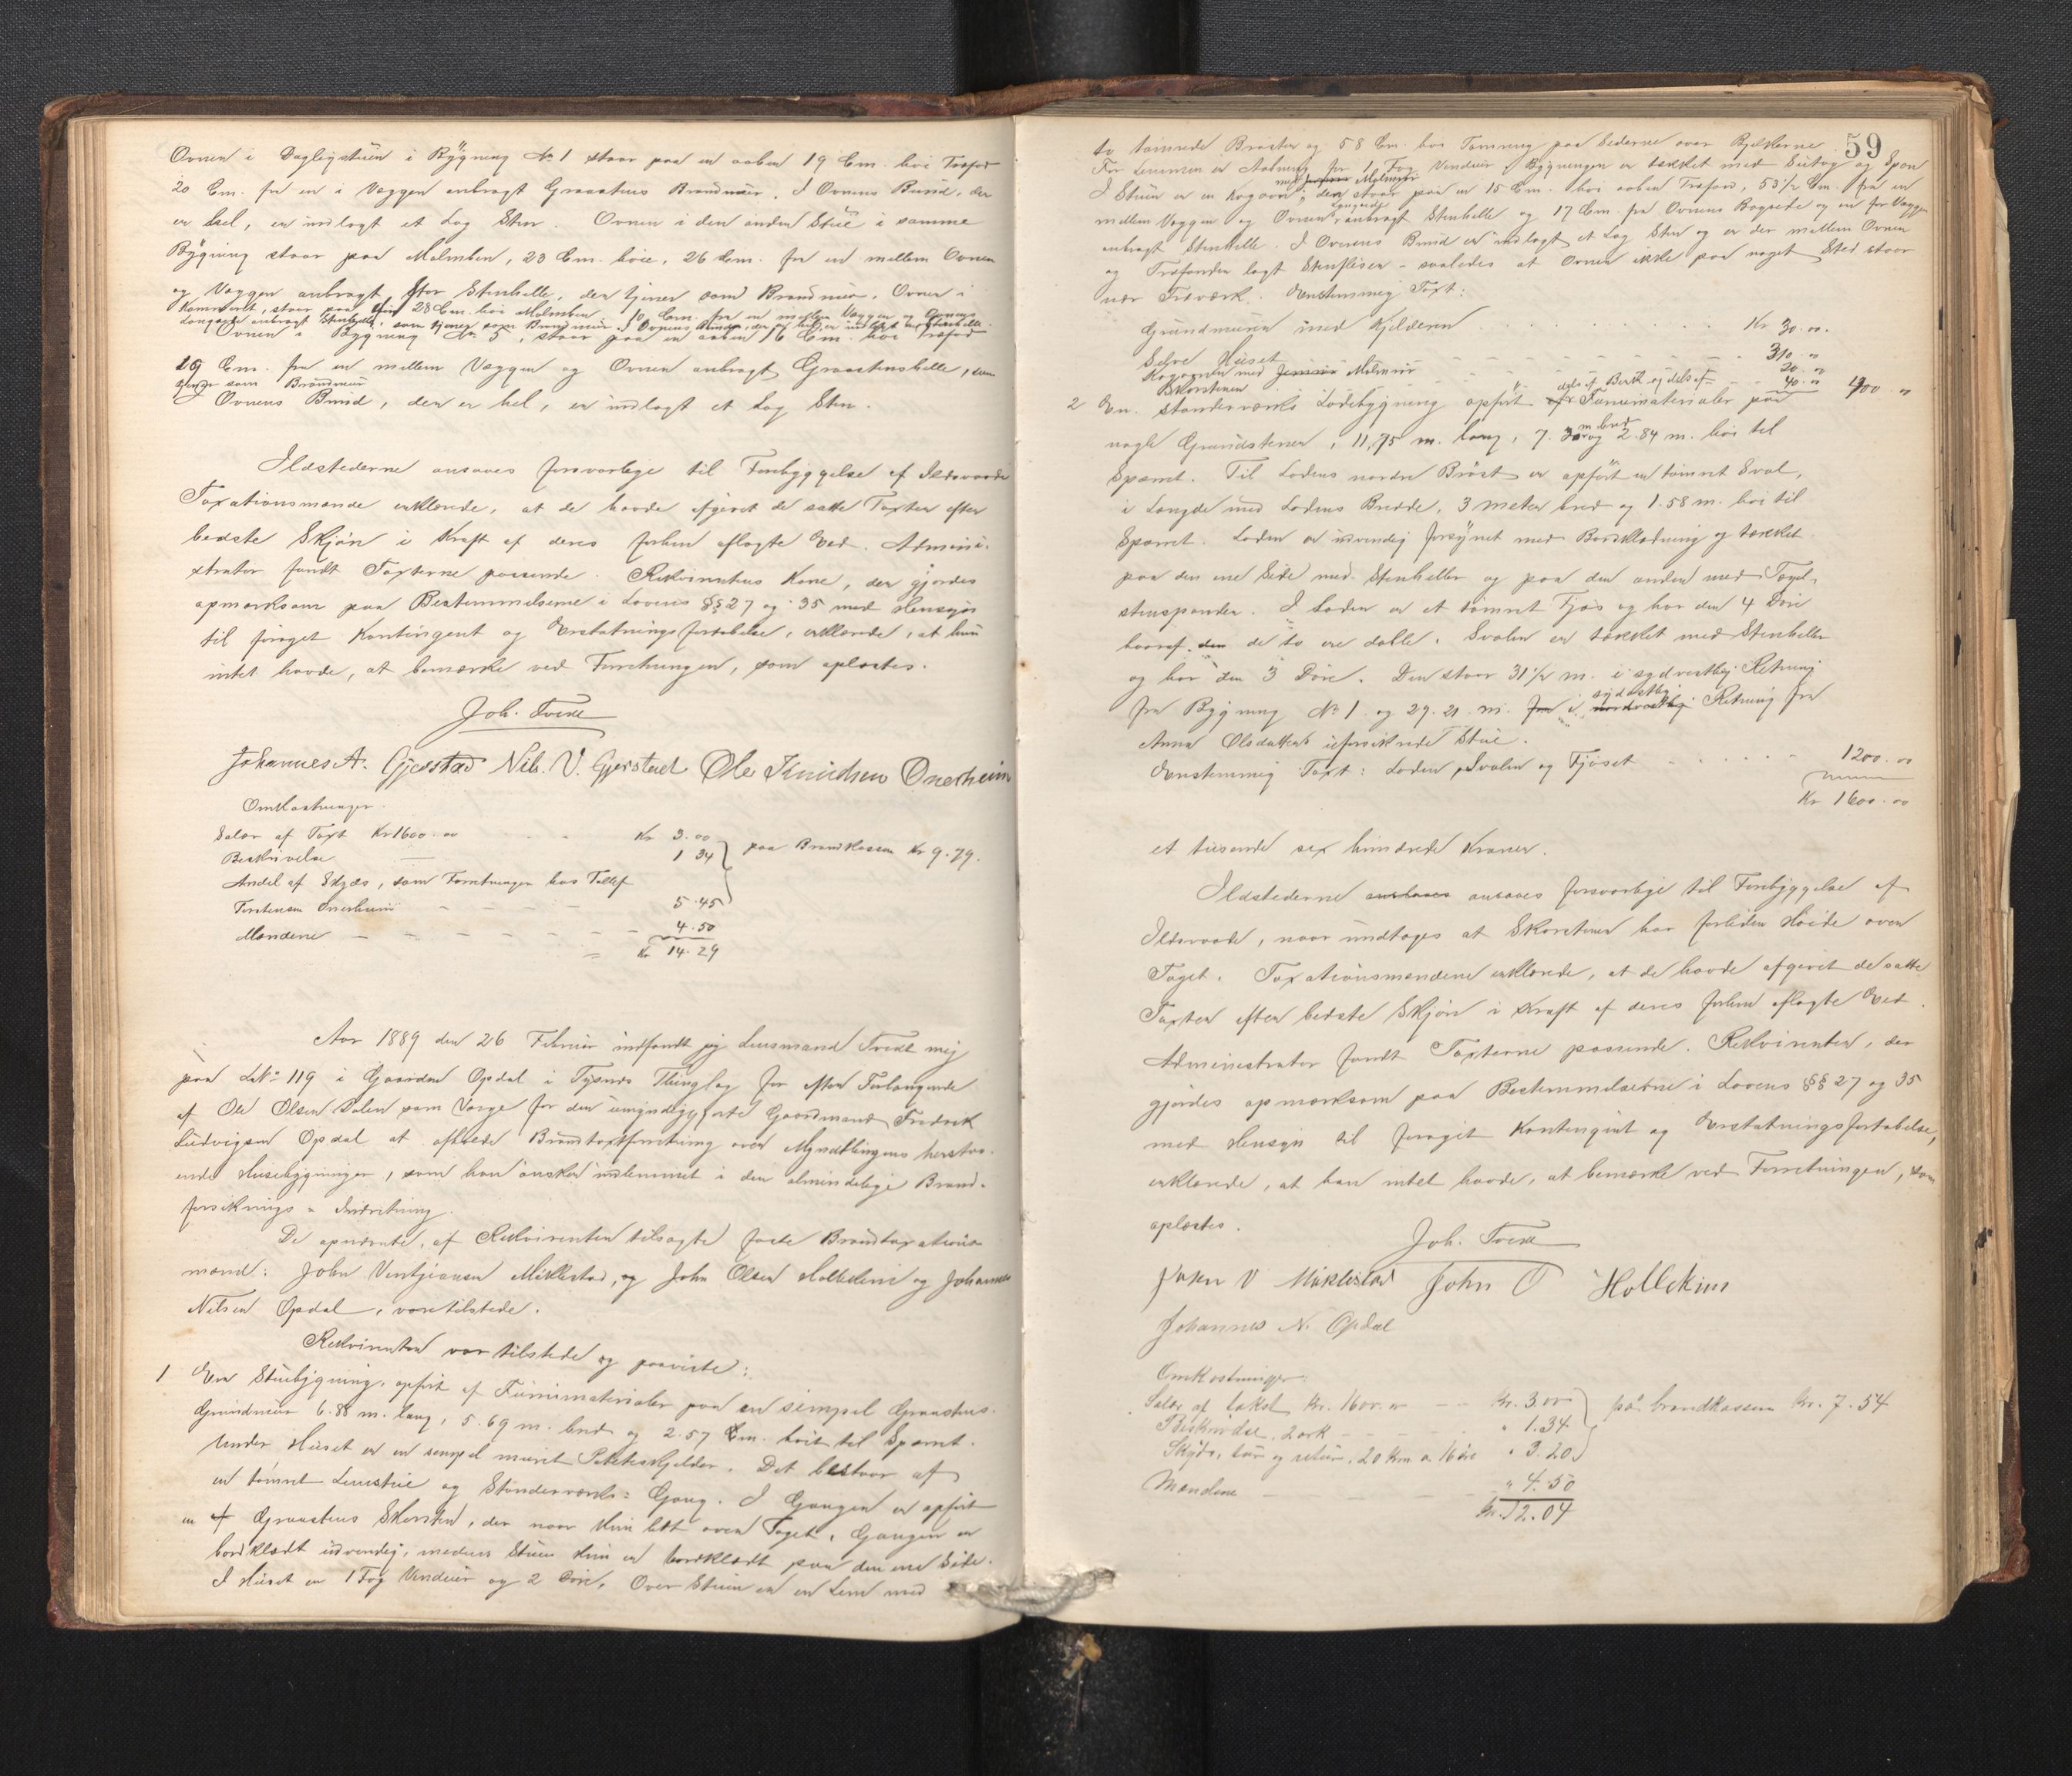 Ovnen i Dagligstuen i Bygning No 1 staar paa en aaben 19 Cm. høi Træfod
20 Cm. fra en i Væggen anbragt Graastens Brandmuur. I Ovnens Bund, der
er hel, er indlagt et Lag Sten. Ovnen i den anden Stue i samme
Bygning staar paa Malmben, 23 Cm. høie, 26 Cm. fra en mellem Ovnen
og Væggen anbragt stor Stenhelle, der tjener som Brandmur. Ovnen i
Kammeret, staar paa 28 Cm. høi Malmben 10 Cm. fra en mellem Væggen og Ovnens
Langside anbragt Stenhelle, som tjener som Brandmuur. I Ovnens Bund, der er hel, er indlagt en Stenhelle.
Ovnen i Bygning No 5, staar paa en aaben 16 Cm. høi Træfod
18 Cm. fra en mellem Væggen og Ovnen anbragt Graastenshelle, som
tjener som Brandmuur
I Ovnens Bund, der er hel, er indlagt et Lag Sten.
Ildstederne ansaaes forsvarlige til Forebyggelse af Ildsvaade
Taxationsmænde erklærede, at de havde afgivet de satte Taxter efter
bedste Skjøn i Kraft af deres forhen aflagte Eed. Admini-
strator fandt Taxterne passende. Rekvirentens Kone, der gjordes
opmærksom paa Bestemmelserne i Lovens §§ 27 og 35 med Hensyn
til forøget Kontingent og Erstatningsfortabelse, erklærede, at hun
intet havde, at bemærke ved Forretningen, som oplæstes.
Joh. Tvedt
Johannes A. Gjerstad Nils. V. Gjerstad Ole Knudsen Onerheim
Omkostninger.
Salær af Taxt Kr 1600.00 Kr 3.00
Beskrivelse 1 34 paa Brandkassen Kr 9.79.
Andel af Skyds, som Forretningen hos Tollef
Torstensen Onerheim 5.45
Mændene 4.50
Kr 14.29
Aar 1889 den 26 Februar indfandt jeg Lensmand Tvedt mig
paa LNo 119 i Gaarden Opdal i Tysnæs Thinglag for efter Forlangende
af Ole Olsen Dalen som Værge for den umyndiggjorte Gaardmand Fredrik
Ludvigsen Opdal at afholde Brandtaxtforretning over Myndlingens herstaa-
ende Husebygninger, som han ønsker indlemmet i den almindelige Brand-
forsikrings-Indretning.
De opnævnte, af Rekvirenten tilsagte faste Brandtaxations-
mænd: John Ventjeansen Miklestad, og John Olsen Hollekim og Johannes
Nilsen Opdal, vare tilstede.
Rekvirenten var tilstede og paaviste:
1 En Stuebygning, opført af Furumaterialer paa en simpel Graastens-
Grundmuur 6.88 m. lang, 5.69 m. bred og 2.57 m. høit til Spærret.
Under Huset er en simpel muret Potetkjelder. Det bestaar af
en tømret Lemstue og Stænderværks-Gang. I Gangen er opført
en Graastens Skorsten, der naar kun lidt over Taget. Gangen er
bordklædt udvendig, medens Stuen kun er bordklædt paa den ene Side.
I Huset er 1 Fag Vinduer og 2 Døre. Over Stuen er en Lem med
59
to tømrede Brøster og 58 Cm. høi Tømring paa Siderne over Bjelkerne
For Lemmen er Aabning for 1 Fag Vinduer. Bygningen er tækket med Sutag og Spon
I Stuen er en Kogeovn med Malmrør, den staar paa en 15 Cm. høi aaben Træfod, 53 1/2 Cm. fra en
mellem Væggen og Ovnens Langside anbragt Stenhelle og 17 Cm. fra Ovnens Bagside og en for Væggen
anbragt Stenhelle. I Ovnens Bund er indlagt et Lag Sten og er der mellem Ovnen
og Træfoden lagt Stenfliser – saaledes at Ovnen ikke paa noget Sted staar
nær Træværk. Enstemmig Taxt:
Grundmuren med Kjelderen Kr 30.00.
Selve Huset 310 „
Kogeovnen med Malmrør 20 „
Skorstenen 40 „ 400 „
2 En Stænderværks Ladebygning opført dels af Birk og dels af Furumaterialer paa
nogle Grundstene, 11,75 m. lang, 7.30 m bred og 2.84 m. høi til
Spærret. Til Ladens nordre Brøst er opført en tømret Sval,
i Længde med Ladens Bredde, 3 Meter bred og 1.58 m. høi til
Spærret. Laden er udvendig forsynet med Bordklædning og tækket
paa den ene Side med Stenheller og paa den anden med Tegl-
stenspander. I Laden er et tømret Fjøs og har den 4 Døre
hvoraf de to ere doble. Svalen er tækket med Stenheller
og har den 3 Døre. Den staar 31 1/2 m. i sydvestlig Retning
fra Bygning No 1 og 29.21 m. i sydøstlig Retning fra
Anna Olsdatters uforsikrede Stue.
Enstemmig Taxt: Laden, Svalen og Fjøset 1200.00
Kr 1600.00
et tusende sex hundrede Kroner.
Ildstederne ansaaes forsvarlige til Forebyggelse af
Ildsvaade, naar undtages at Skorstenen har forliden Høide over
Taget. Taxationsmændene erklærede, at de havde afgivet de satte
Taxter efter bedste Skjøn i Kraft af deres forhen aflagte Eed.
Administrator fandt Taxterne passende. Rekvirenten, der
gjordes opmærksom paa Bestemmelserne i Lovens §§ 27 og 35
med Hensyn til forøget Kontingent og Erstatningsfortabelse,
erklærede, at han intet havde, at bemærke ved Forretningen, som
oplæstes.
Joh. Tvedt
John V Miklestad John O Hollekim
Johannes N. Opdal
Omkostninger:
Salær af takst kr. 1600.00 kr. 3.00 på brandkassen kr. 7.54
Beskrivelse. 2 ark „ 1.34
Skyds, tur og retur. 20 km a 16 øre „ 3.20
Mændene „ 4.50
kr. 12.04